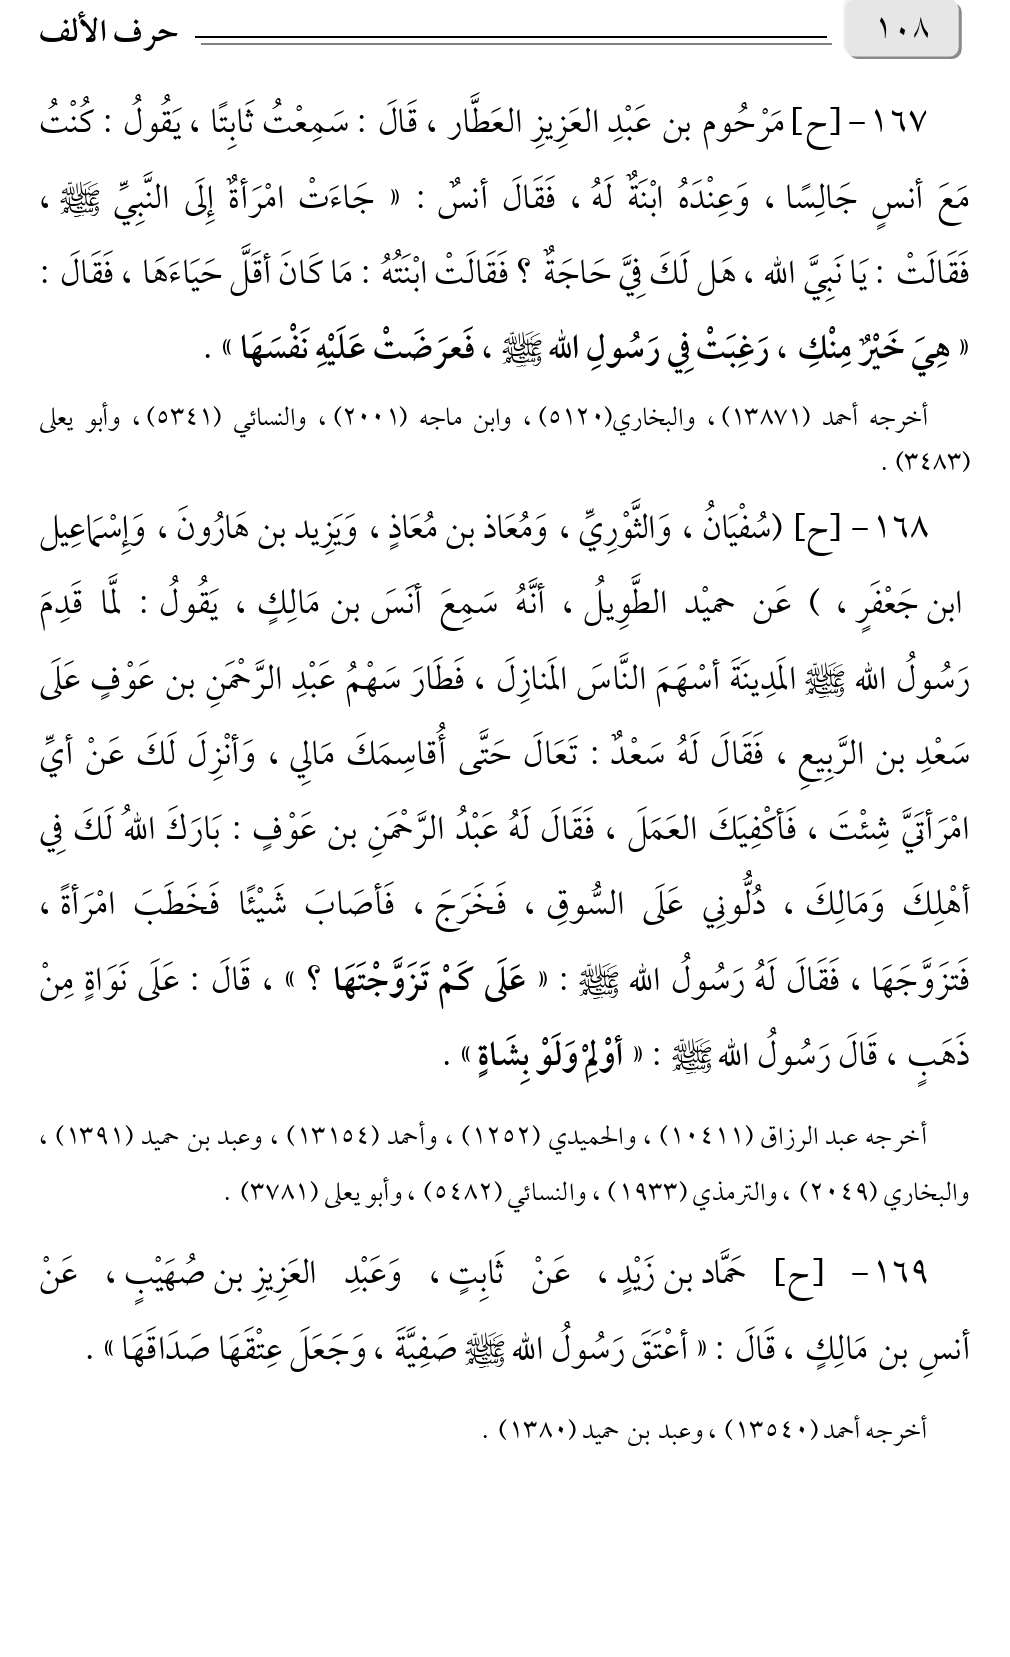 ١٠٨ حرف الألف
١٦٧- [ح] مَرْحُوم بن عَبْدِ العَزِيزِ العَطَّار ، قَالَ : سَمِعْتُ ثَابِتًا ، يَقُولُ : كُنْتُ
مَعَ أنسٍ جَالِسًا ، وَعِنْدَهُ ابْنَةٌ لَهُ ، فَقَالَ أنسٌ : « جَاءَتْ امْرَأةٌ إِلَى النَّبِيِّ ﷺ ،
فَقَالَتْ : يَا نَبِيَّ الله ، هَل لَكَ فِيَّ حَاجَةٌ ؟ فَقَالَتْ ابْنَتُهُ : مَا كَانَ أقَلَّ حَيَاءَهَا ، فَقَالَ :
« هِيَ خَيْرٌ مِنْكِ ، رَغِبَتْ فِي رَسُولِ الله ﷺ ، فَعرَضَتْ عَلَيْهِ نَفْسَهَا » .
أخرجه أحمد (١٣٨٧١) ، والبخاري(٥١٢٠) ، وابن ماجه (٢٠٠١) ، والنسائي (٥٣٤١) ، وأبو يعلى
(٣٤٨٣) .
١٦٨- [ح] (سُفْيَانُ ، وَالثَّوْرِيِّ ، وَمُعَاذ بن مُعَاذٍ ، وَيَزِيد بن هَارُونَ ، وَإِسْمَاعِيل
ابن جَعْفَرٍ ، ) عَن حميْد الطَّوِيلُ ، أنَّهُ سَمِعَ أنَسَ بن مَالِكٍ ، يَقُولُ : لمَّا قَدِمَ
رَسُولُ الله ﷺ المَدِينَةَ أسْهَمَ النَّاسَ المَنازِلَ ، فَطَارَ سَهْمُ عَبْدِ الرَّحْمَنِ بن عَوْفٍ عَلَى
سَعْدِ بن الرَّبِيعِ ، فَقَالَ لَهُ سَعْدٌ : تَعَالَ حَتَّى أُقاسِمَكَ مَالِي ، وَأنْزِلَ لَكَ عَنْ أيِّ
امْرَأتَيَّ شِئْتَ ، فَأكْفِيَكَ العَمَلَ ، فَقَالَ لَهُ عَبْدُ الرَّحْمَنِ بن عَوْفٍ : بَارَكَ اللهُ لَكَ فِي
أهْلِكَ وَمَالِكَ ، دُلُّونِي عَلَى السُّوقِ ، فَخَرَجَ ، فَأصَابَ شَيْئًا فَخَطَبَ امْرَأةً ،
فَتزَوَّجَهَا ، فَقَالَ لَهُ رَسُولُ الله ﷺ : « عَلَى كَمْ تَزَوَّجْتَهَا ؟ » ، قَالَ : عَلَى نَوَاةٍ مِنْ
ذَهَبٍ ، قَالَ رَسُولُ الله ﷺ : « أوْلِمْ وَلَوْ بِشَاةٍ » .
أخرجه عبد الرزاق (١٠٤١١) ، والحميدي (١٢٥٢) ، وأحمد (١٣١٥٤) ، وعبد بن حميد (١٣٩١) ،
والبخاري (٢٠٤٩) ، والترمذي (١٩٣٣) ، والنسائي (٥٤٨٢) ، وأبو يعلى (٣٧٨١) .
١٦٩- [ح] حَمَّاد بن زَيْدٍ ، عَنْ ثَابِتٍ ، وَعَبْدِ العَزِيزِ بن صُهَيْبٍ ، عَنْ
أنسِ بن مَالِكٍ ، قَالَ : « أعْتَقَ رَسُولُ الله ﷺ صَفِيَّةَ ، وَجَعَلَ عِتْقَهَا صَدَاقَهَا » .
أخرجه أحمد (١٣٥٤٠) ، وعبد بن حميد (١٣٨٠) .